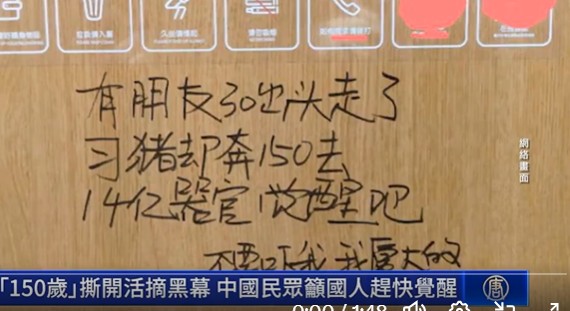 有朋友30出头走了
习猪却奔150去
14亿器官觉醒吧
網絡畫面
「150歲」撕開活摘黑幕 中國民眾籲國人趕快覺醒
唐
0:00 / 1:48